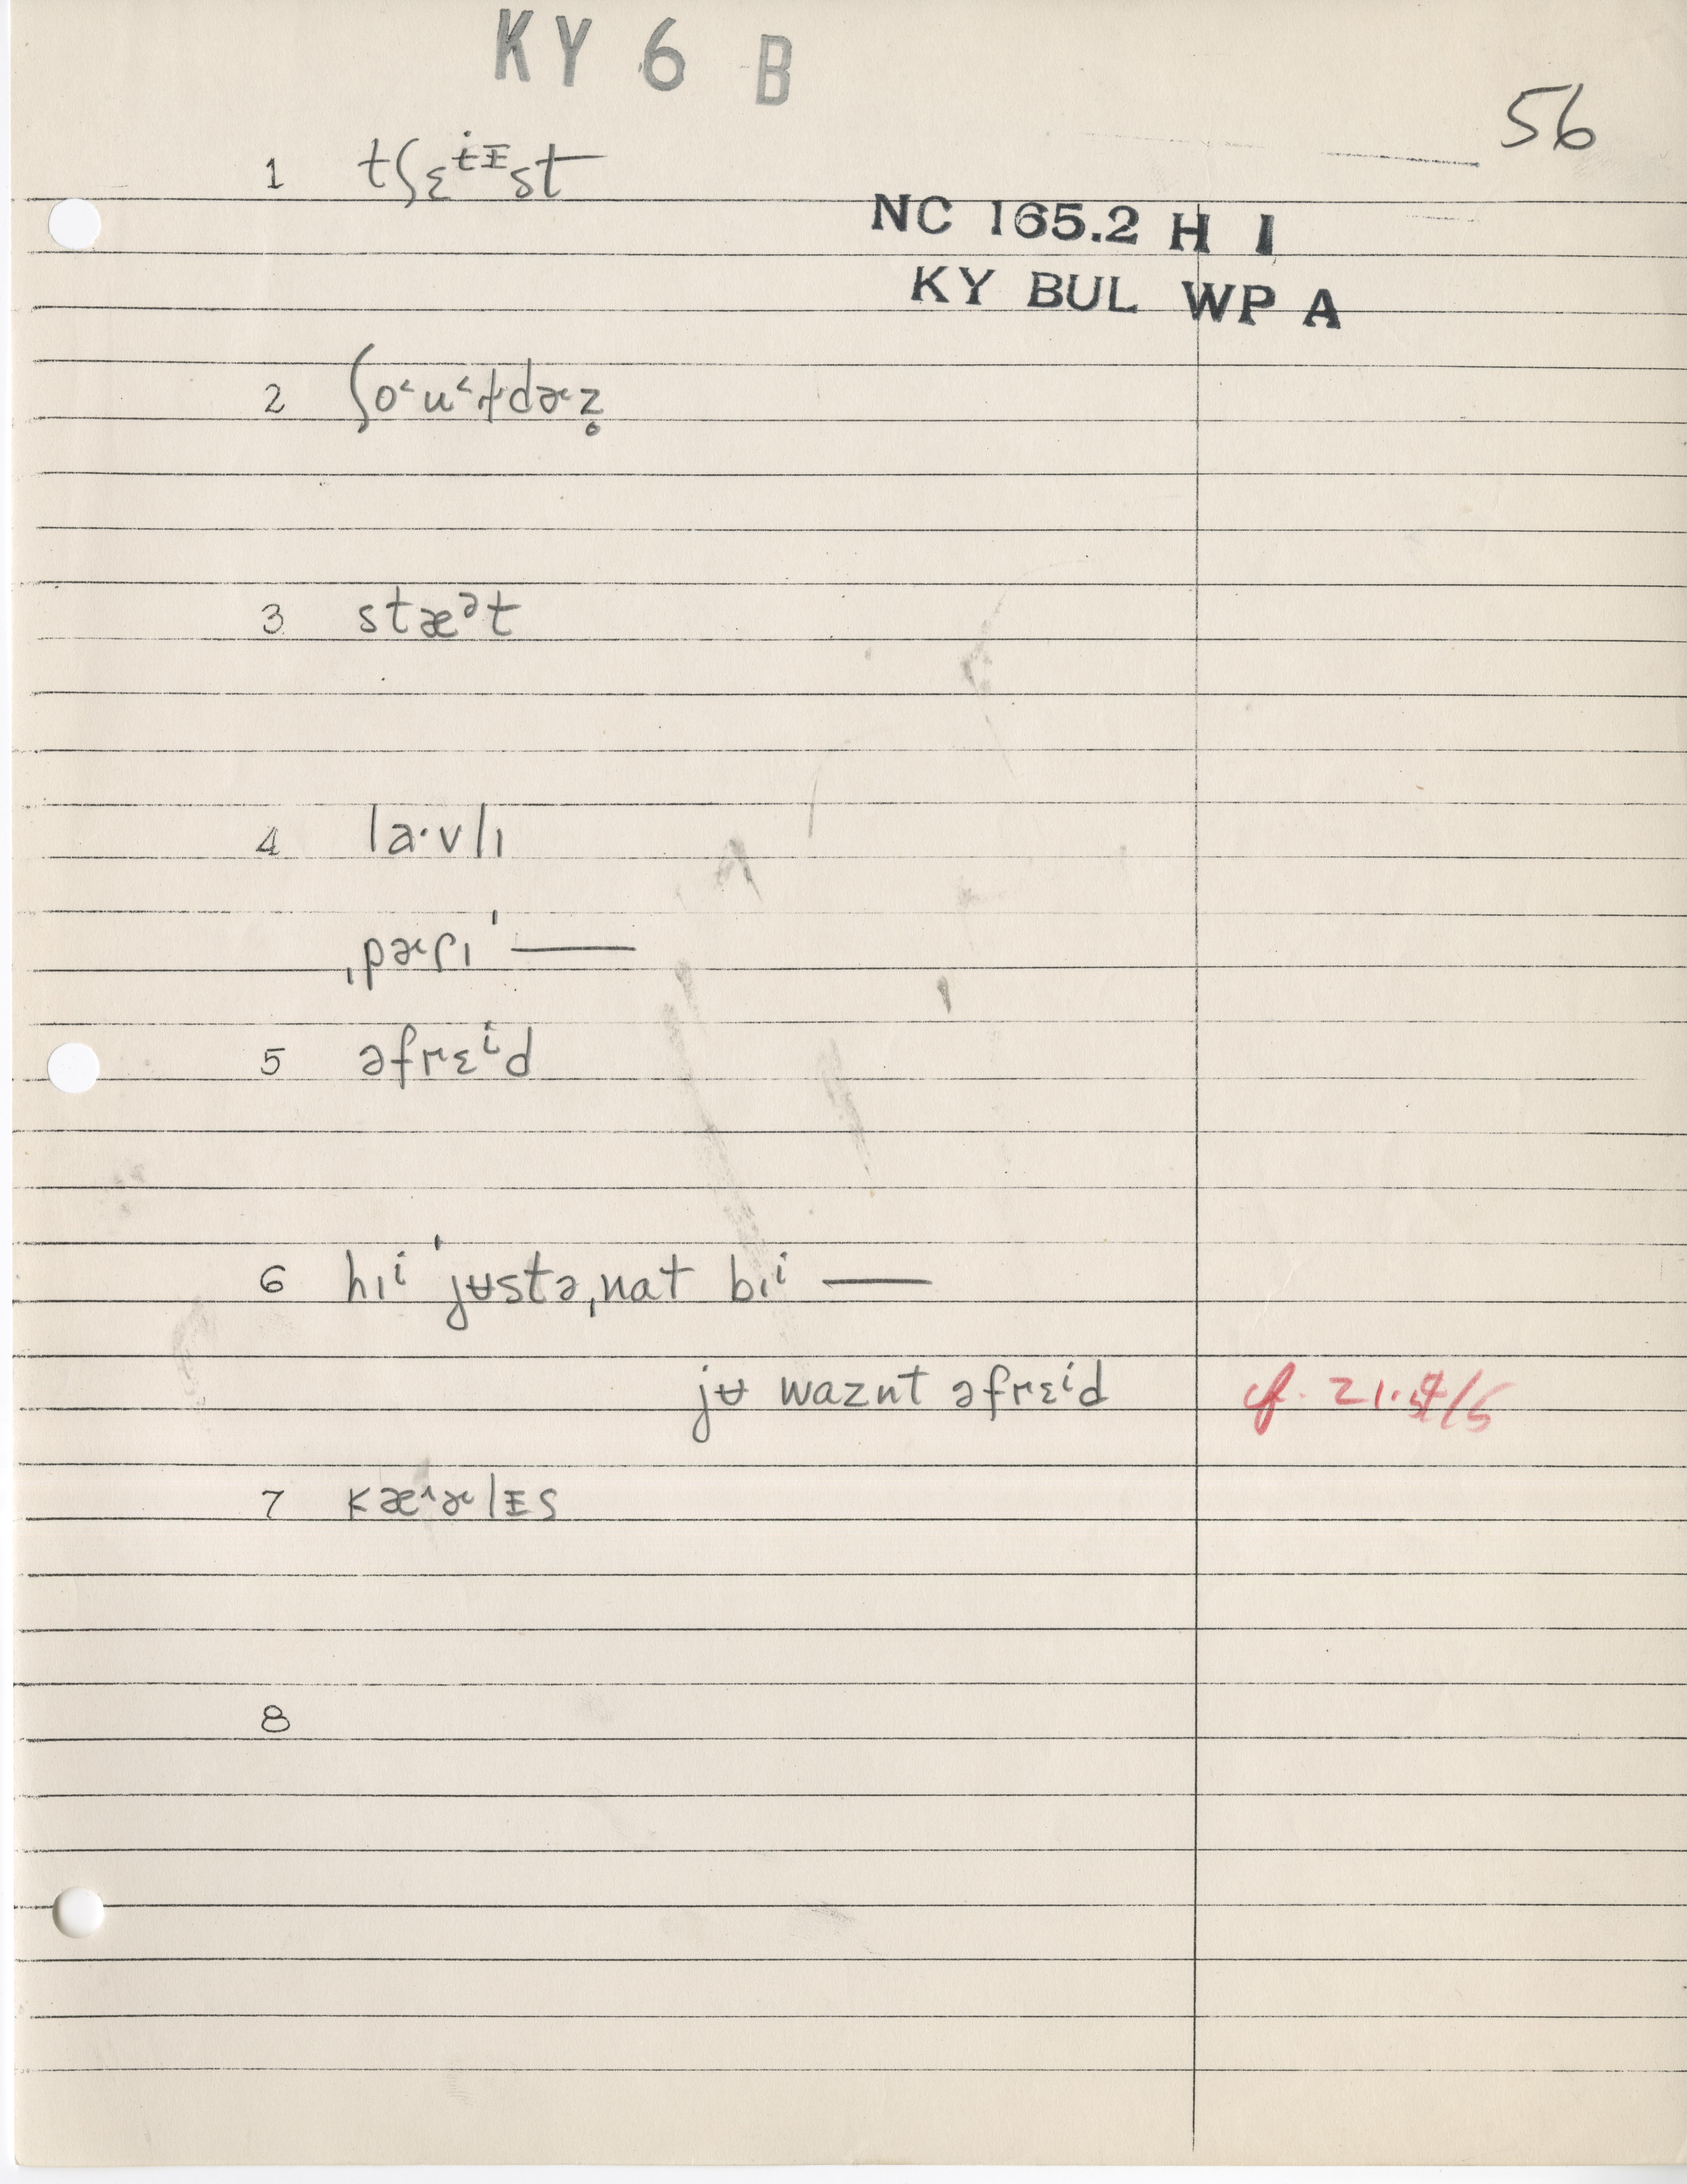 KY 6 B
56
1 tʃɛɨᵻst
NC 165.2 H I
KY BUL WP A
2 ʃo˂u˂ɫdɚz̥
3 stæᵊt
4 la·vlɪ
ˌpɚɾɪˈ —
5 əfrɛⁱd
6 hɪⁱ ˈjʉstəˌnat bɪⁱ —
jʉ waznt əfrɛⁱd
cf. 21.4/5
7 kæ˄ɚlᵻs
8